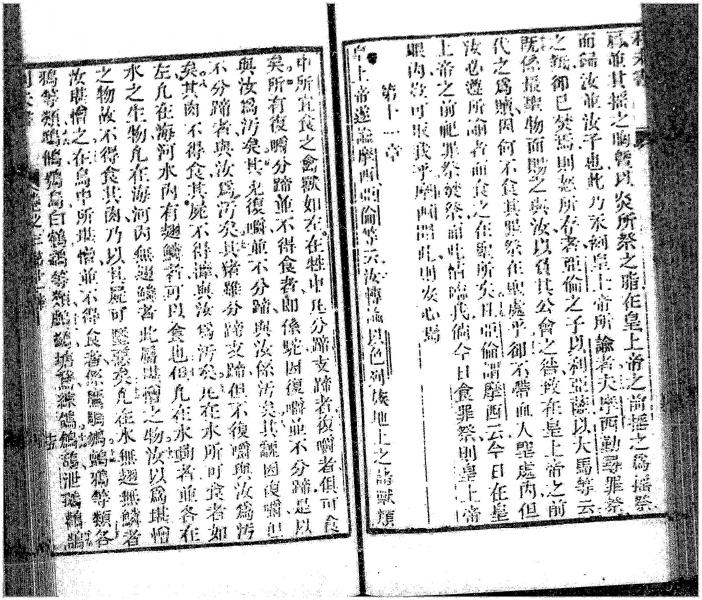 肩並其搖之胸以炎所祭之脂在皇上帝之前搖之爲搖祭
而歸汝並汝子也此乃永例皇上帝所諭者夫摩西勤尋罪祭
之卻已焚焉則怒所存者亞倫之子以利亞以大馬等云
既係最聖物而賜之與汝以負其公會之咎致在皇上帝之前
代之爲贖因何不食其罪祭在聖處乎卻不帶血入聖處內但
汝必遵所諭者而食之在聖所矣且亞倫謂摩西云今日在皇
上帝之前祀罪祭焚祭而此情臨我倘今日食罪祭則皇上帝
眼內豈可取我乎摩西聞此則安心焉
第十一章
皇上帝遂諭摩西亞倫等云汝傳諭以色列族地上之諸獸類
中所宜食之禽獸如左在牲中凡分蹄支蹄者復嚼者俱可食
矣所有復嚼分蹄並不得食者即係駝因復嚼並不分蹄是以
與汝爲汚矣其兎復嚼並不分蹄與汝係汚矣其因復嚼但
不分蹄者與汝爲汚矣其猪雖分蹄支蹄但不復嚼與汝爲汚
矣其肉不得食其屍不得與汝爲汚矣凡在水所可食者如
左凡在海河水內有翅鱗者可以食也但凡在水動者並各在
水之生物凡在海河內無翅鱗者此屬堪憎之物汝以爲堪憎
之物故不得食其肉乃以其屍可惡矣凡在水無翅無鱗者
汝堪憎之在鳥中所堪憎並不得食者係鵰鴉等類各
鴉等類鵂鴉鳥白鶴等類